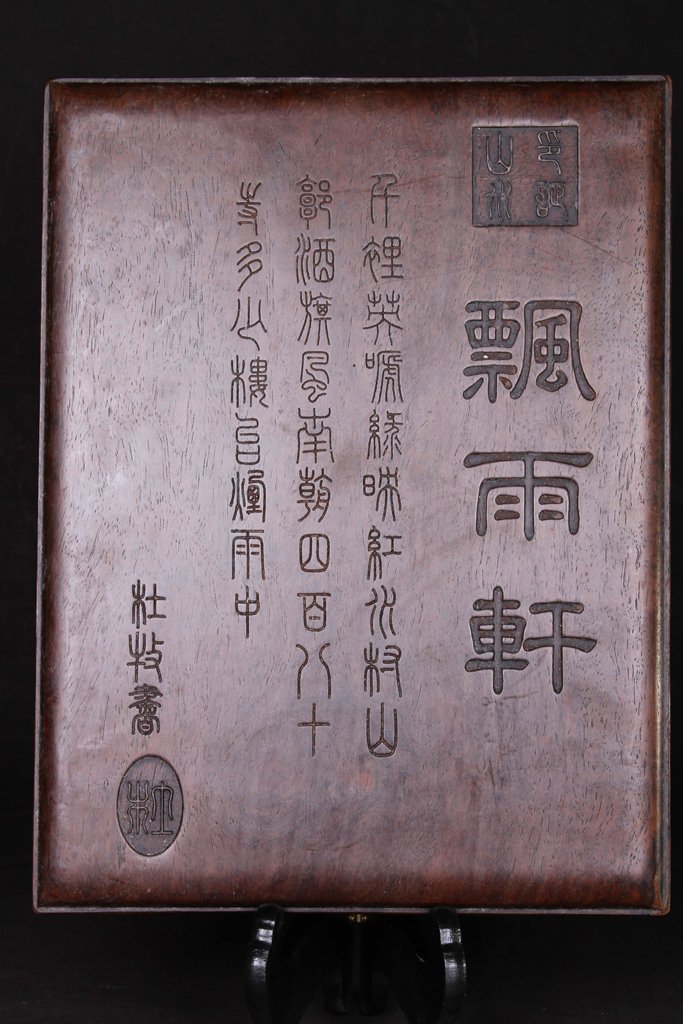 印記
山水
飄雨軒
千裡英嗁綠映紅水村山
郭酒旗風南朝四百八十
寺多少樓台煙雨中
杜牧書